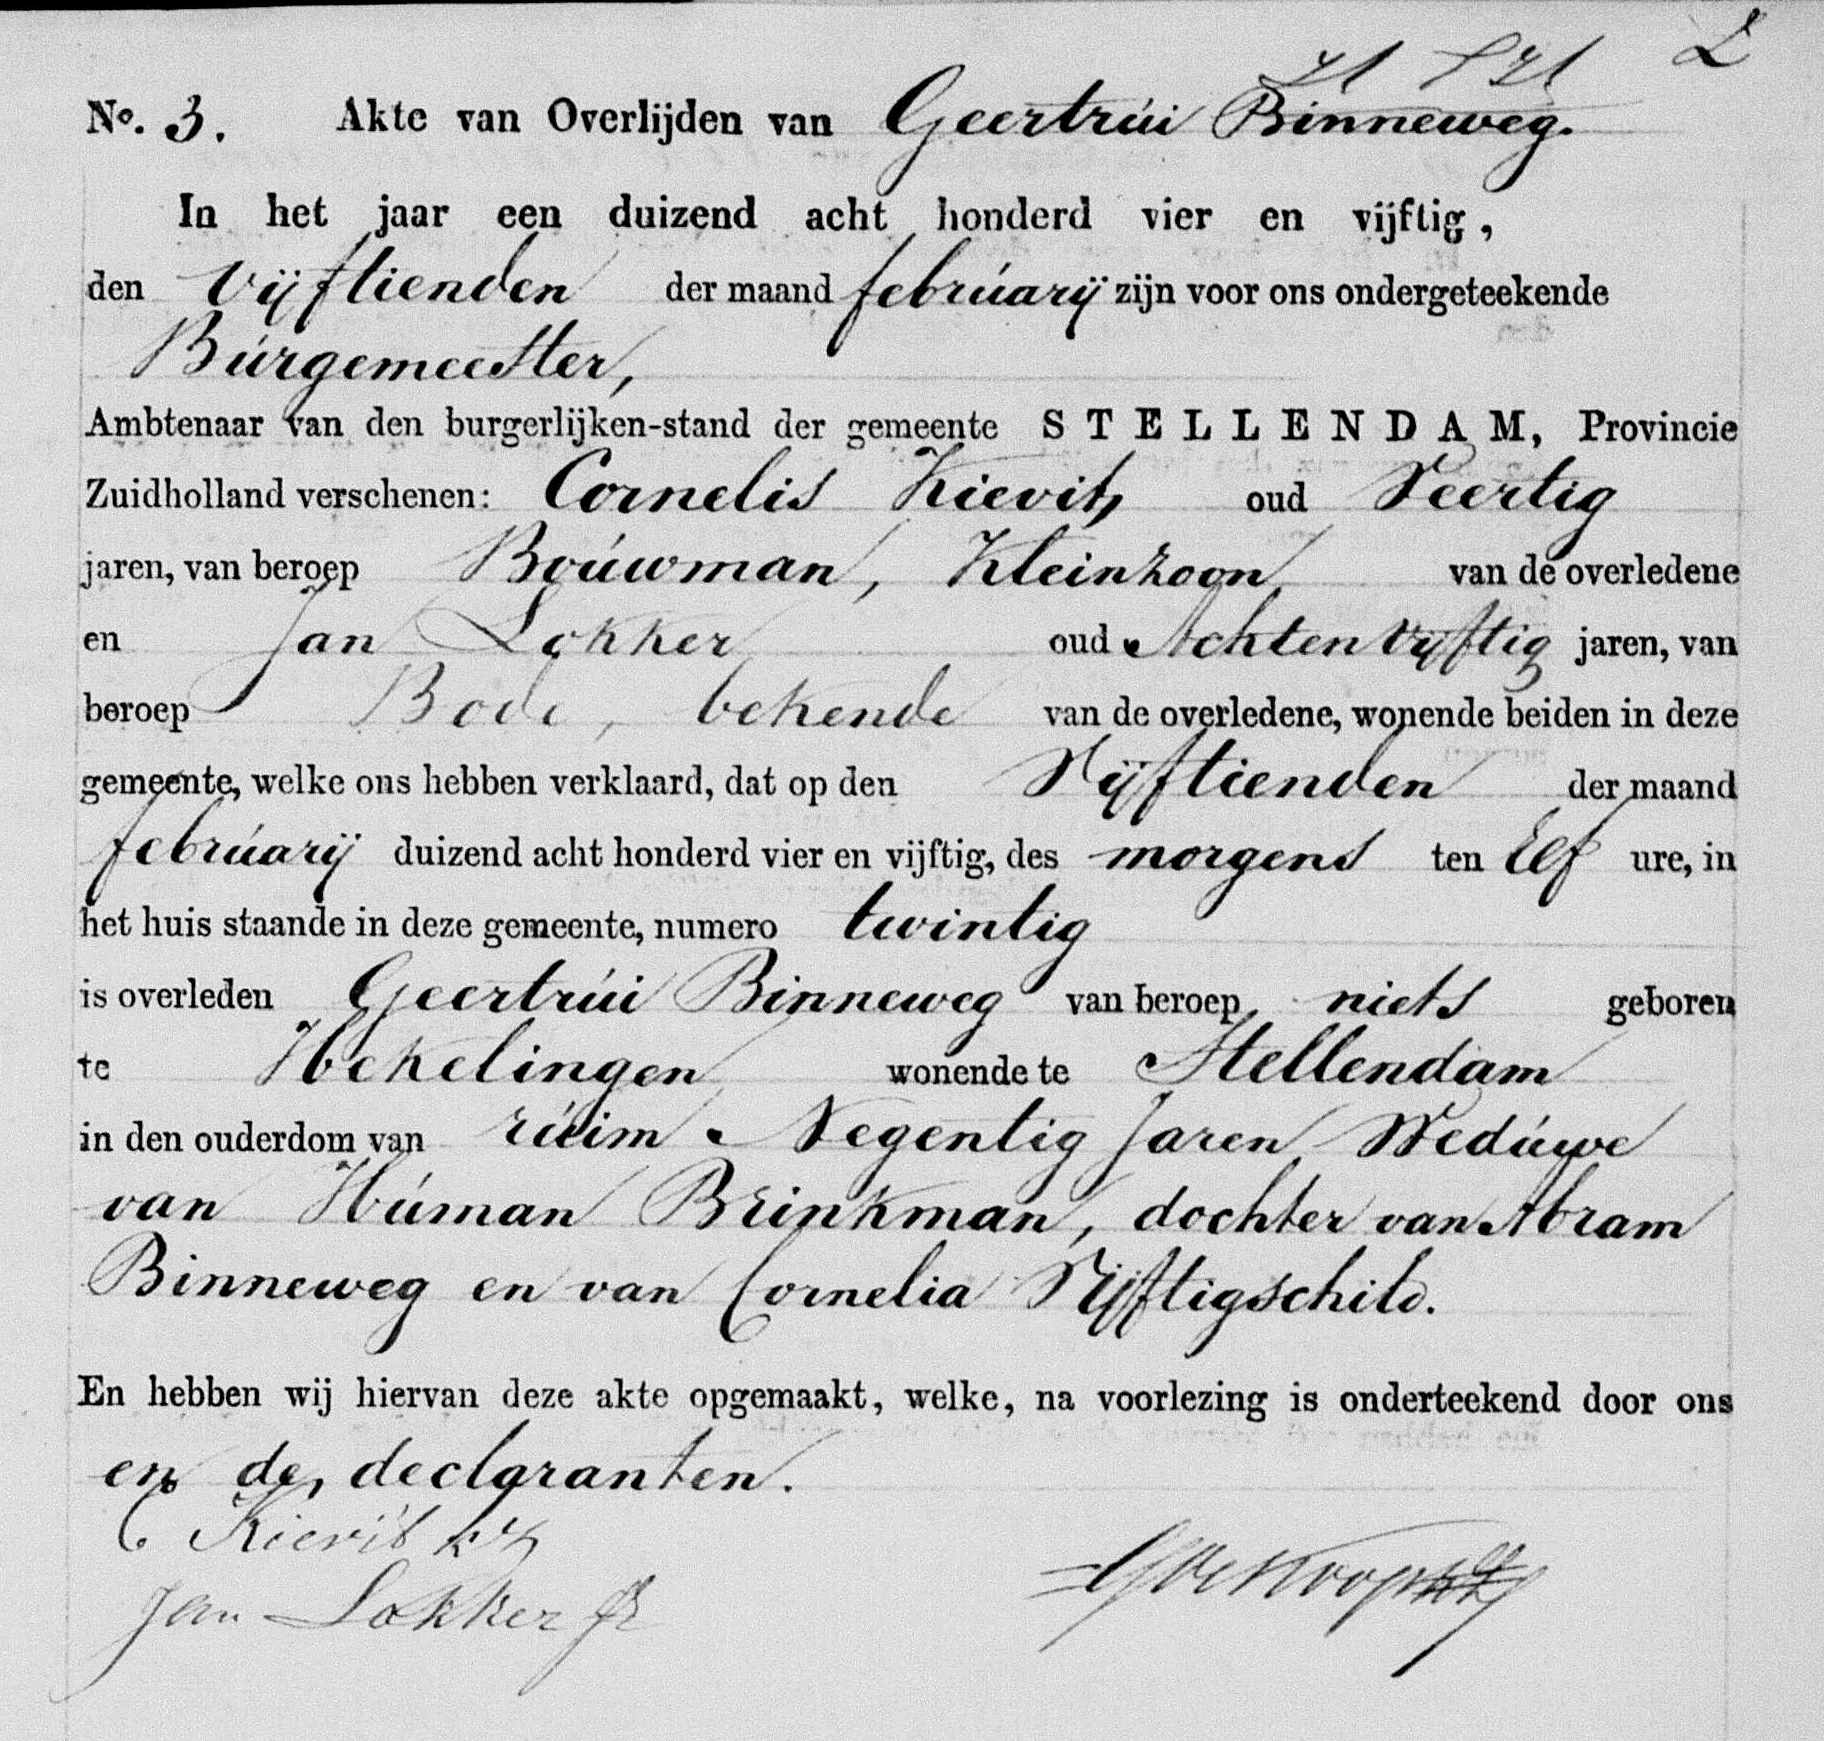 2
No. 3. Akte van Overlijden van Geertrúi Binneweg.
In het jaar een duizend acht honderd vier en vijftig,
den vijftienden der maand februarij zijn voor ons ondergeteekende
Burgemeester,
Ambtenaar van den burgerlijken-stand der gemeente STELLENDAM, Provincie
Zuidholland verschenen: Cornelis Kievit, oud Veertig
jaren, van beroep Bouwman, Kleinzoon van de overledene
en Jan Lokker oud Achtenvijftig jaren, van
beroep Bode, bekende van de overledene, wonende beiden in deze
gemeente, welke ons hebben verklaard, dat op den Vijftienden der maand
februarij duizend acht honderd vier en vijftig, des morgens ten Elf ure, in
het huis staande in deze gemeente, numero twintig
is overleden Geertrúi Binneweg van beroep niets geboren
te Hekelingen wonende te Stellendam
in den ouderdom van ruim Negentig Jaren Weduwe
van Human Brinkman, dochter van Abram
Binneweg en van Cornelia Vijftigschild.
En hebben wij hiervan deze akte opgemaakt, welke, na voorlezing is onderteekend door ons
en de declaranten.
C Kievit
Jan Lokker